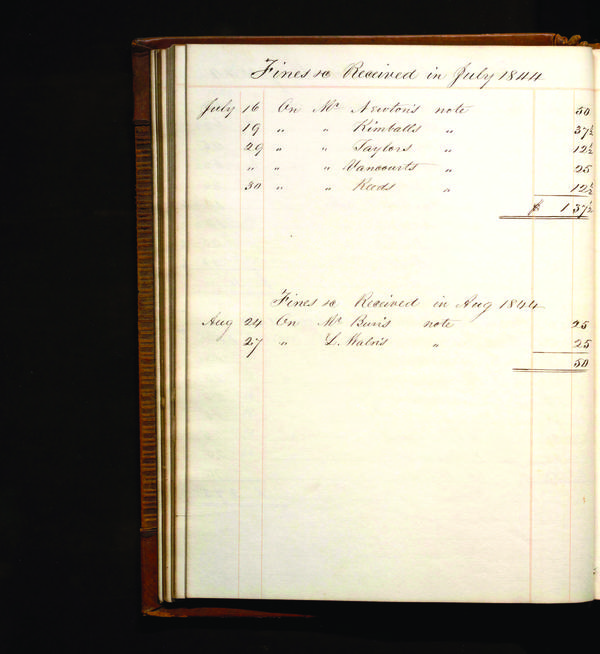 Fines &c Received in July 1844
July 16 On Mr Newton's note 50
19 " " Kimball's " 37½
29 " " Taylors " 12½
" " " Vancourts " 25
30 " " Reeds " 12½
$ 1 37½
Fines &c Received in Aug 1844
Aug 24 On Mr note 25
27 " L. "  25
50